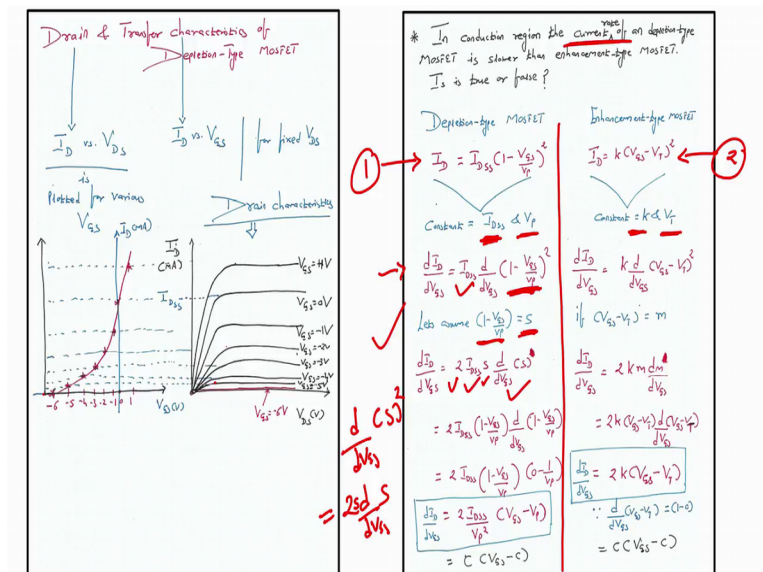 Drain & Transfer characteristics of
Depletion-Type MOSFET
I_D vs. V_DS
is
Plotted for various
V_GS
I_D vs. V_GS | for fixed V_DS
Drain characteristics
I_D(mA)
-6 -5 -4 -3 -2 -1 0 1
V_GS(V)
I_D
(mA)
I_DSS
V_GS=+1V
V_GS=0V
V_GS=-1V
V_GS=-2V
V_GS=-3V
V_GS=-4V
V_GS=-5V
V_GS=-6V
V_DS(V)
* In conduction region the current rate of an depletion-type
MOSFET is slower than enhancement-type MOSFET.
Is is true or false?
Depletion-type MOSFET
① → I_D = I_DSS (1-V_GS/V_P)^2
Constant = I_DSS & V_P
dI_D/dV_GS = I_DSS d/dV_GS (1-V_GS/V_P)^2
Lets assume (1-V_GS/V_P) = S
dI_D/dV_GS = 2 I_DSS S d/dV_GS (S)
= 2 I_DSS (1-V_GS/V_P) d/dV_GS (1-V_GS/V_P)
= 2 I_DSS (1-V_GS/V_P) (0-1/V_P)
dI_D/dV_GS = 2 I_DSS/V_P^2 (V_GS-V_P)
= C (V_GS-C)
d/dV_GS (S)^2
= 2S d/dV_GS S
Enhancement-type MOSFET
I_D = k (V_GS-V_T)^2 ← ②
Constant = k & V_T
dI_D/dV_GS = k d/dV_GS (V_GS-V_T)^2
if (V_GS-V_T) = m
dI_D/dV_GS = 2 k m dm
dV_GS
= 2k (V_GS-V_T) d/dV_GS (V_GS-V_T)
dI_D/dV_GS = 2k (V_GS-V_T)
∵ d/dV_GS (V_GS-V_T) = (1-0)
= C (V_GS-C)